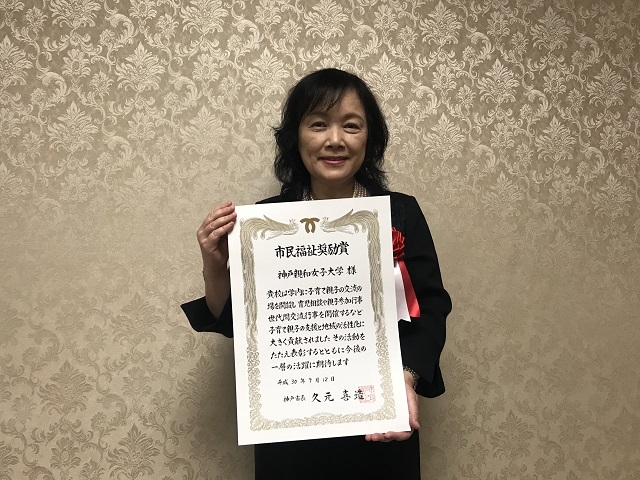 市民福祉奨励賞
神戸親和女子大学 様
貴校は学内に子育て親子の交流の
場を開設し育児相談や親子参加行事
世代間交流行事を開催するなど
子育て親子の支援と地域の活性化に
大きく貢献されました その活動を
たたえ表彰するとともに今後の
一層の活躍に期待します
平成 30 年 7 月 12 日
神戸市長 久元喜造